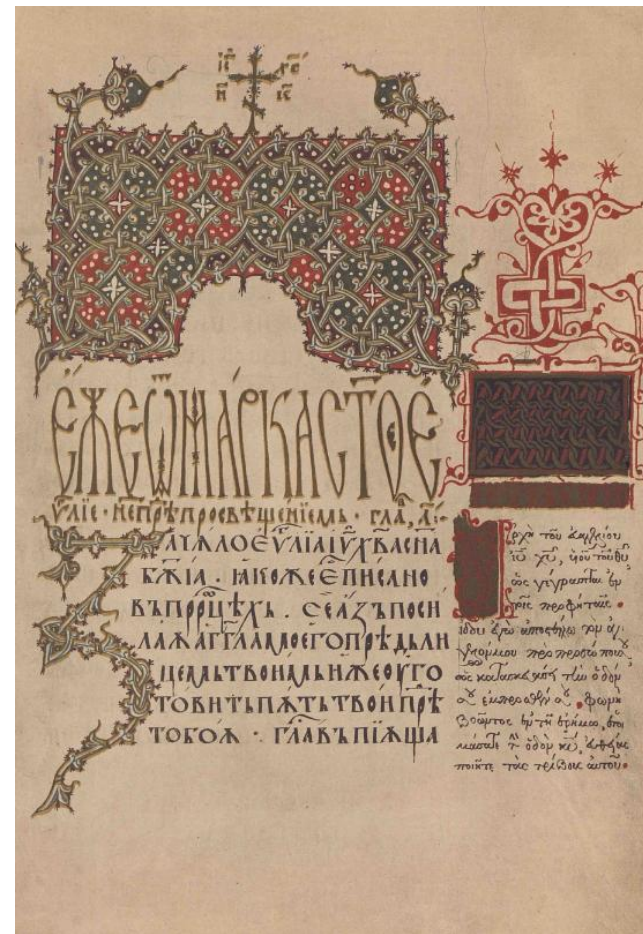 І҃С Х҃С
Н И К
Є́ЖЕ Ѿ МА́РКА С҃ТОЕ́
Ѵ҃ЛІЕ · НЕ҃ПРѢ ПРОСВѢЩЕНІЕМЬ · ГЛА҃ А҃ :·
ЗАЧѦЛО Е҃ѴЛІА І҃Ѵ Х҃ВА С҃НА
Б҃ЖІА · ІАКОЖЕ Є҃ ПИСАНО
ВЪ ПРО҃РЦѢХЬ · СЕ АЗЪ ПОСИ
ЛАѪ А҃ГГЛА МОЕГО ПРѢДЬ ЛИ
ЦЕМЬ ТВОИМЬ ИЖЕ ОУГО
ТОВИТЬ ПѪТЬ ТВОИ ПРѢ҃
ТОБОѪ · ГЛА҃ ВЪПІѪЩА
Ἀρχὴ τοῦ εὐαγγελίου
ἰ῀υ χ῀υ, υἱοῦ τοῦ θ῀υ
ὡς γέγραπται ἐν
τοῖς προφήταις.
ἰδοὺ ἐγὼ ἀποστέλλω τὸν ἄγ
γελόν μου πρὸ προσώπου
σου ὃς κατασκευάσει τὴν ὁδόν
σου ἔμπροσθέν σου. φωνὴ
βοῶντος ἐν τῇ ἐρήμῳ, ἑτοι
μάσατε τὴν ὁδὸν κ῀υ, εὐθείας
ποιεῖτε τὰς τρίβους αὐτοῦ.